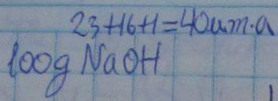 23+16+1=40um.a
100g NaOH